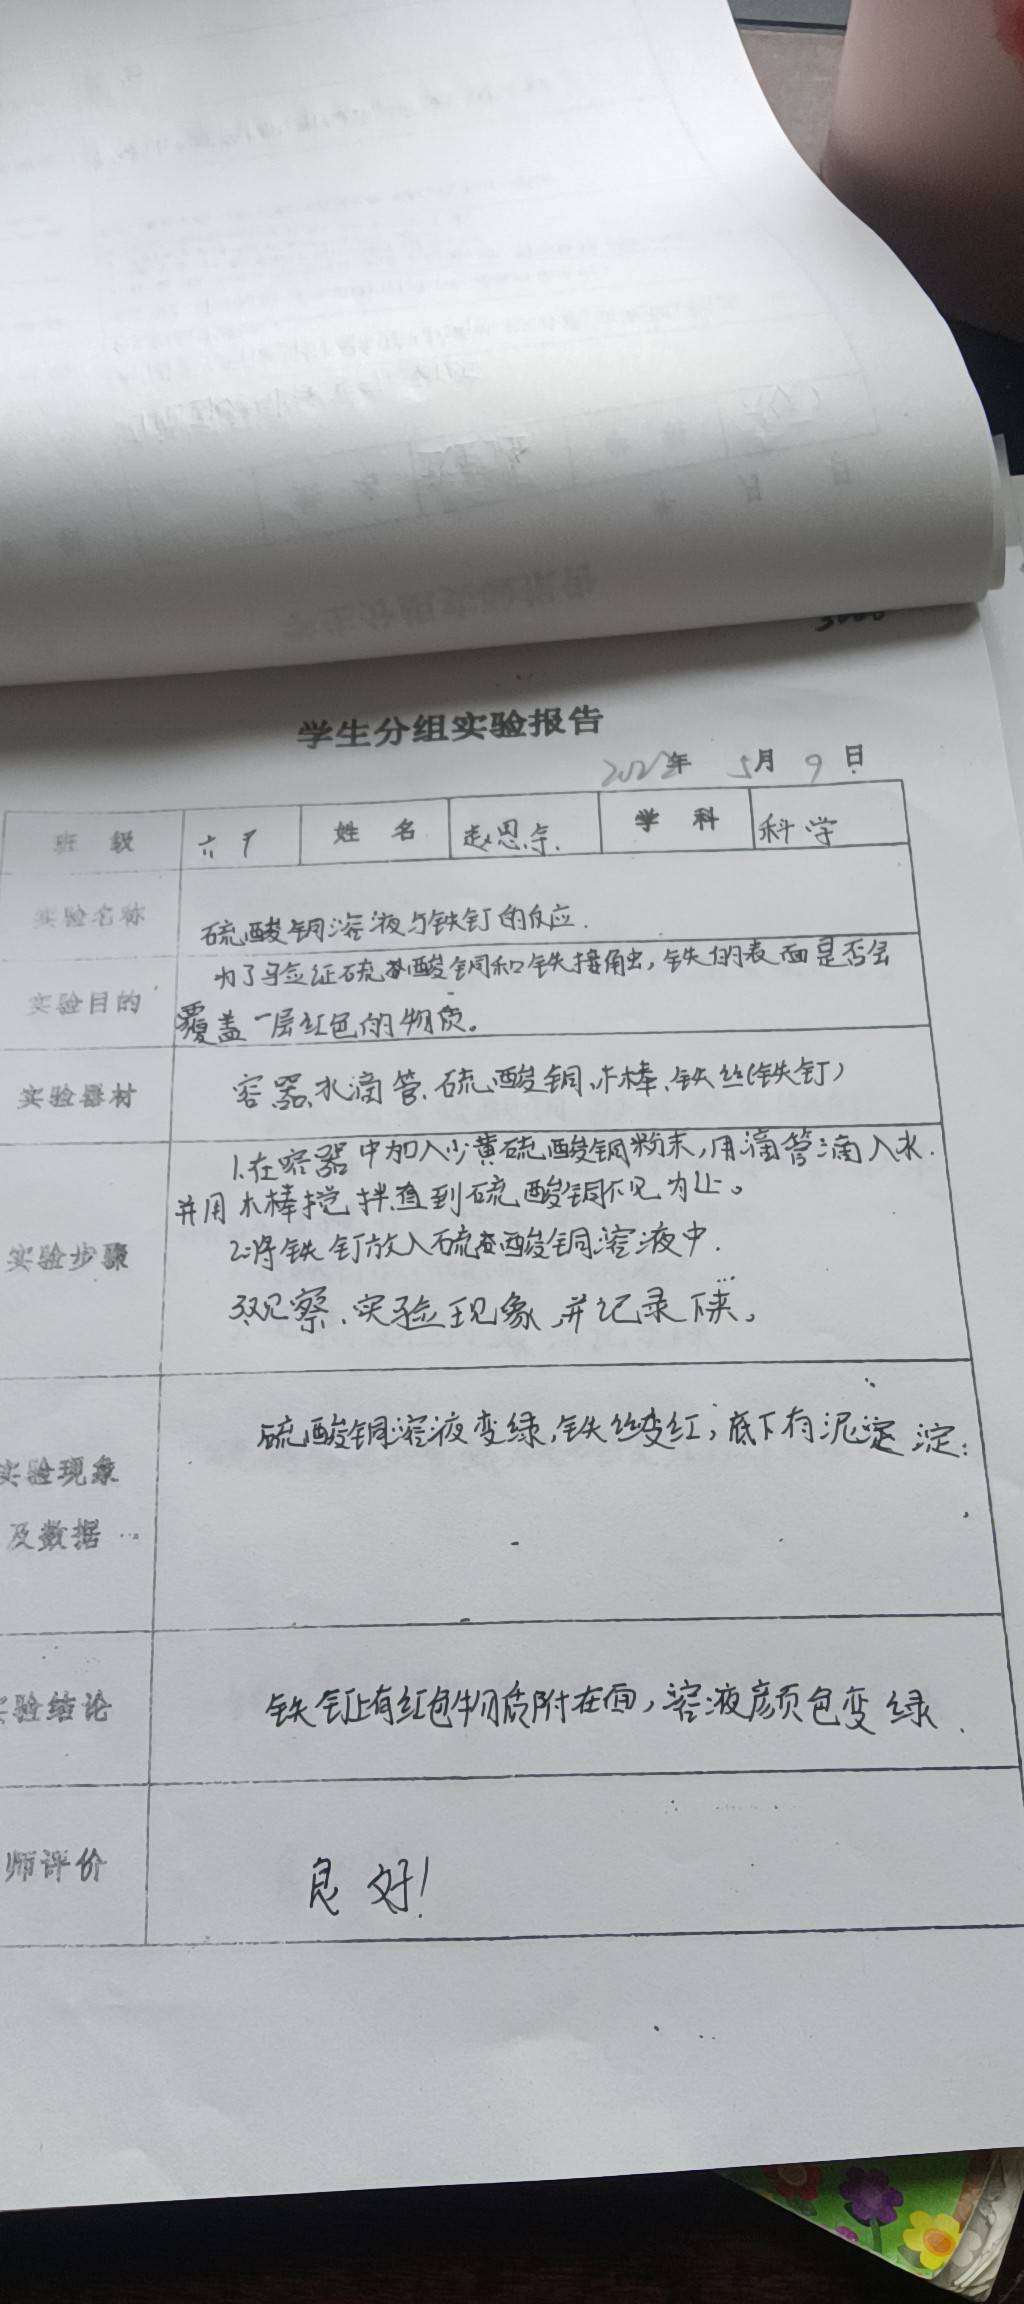 学生分组实验报告
2022年 5月 9日
班 级 六 姓 名 赵思 学 科 科学
实验名称 硫酸铜溶液与铁钉的反应.
为了验证硫酸铜和铁接触,铁的表面是否会
实验目的 覆盖一层红色的物质。
实验器材 容器、水滴管、硫酸铜、木棒、铁丝(铁钉)
1.在容器中加入少黄硫酸铜粉末,用滴管滴入水.
并用木棒搅拌直到硫酸铜不见为止。
实验步骤 2.将铁钉放入硫酸铜溶液中.
3.观察、实验现象,并记录下来。
硫酸铜溶液变绿,铁丝变红,底下有泥淀
实验现象
及数据
实验结论 铁钉上有红色物质附在面,溶液颜色变绿.
师评价 良好!